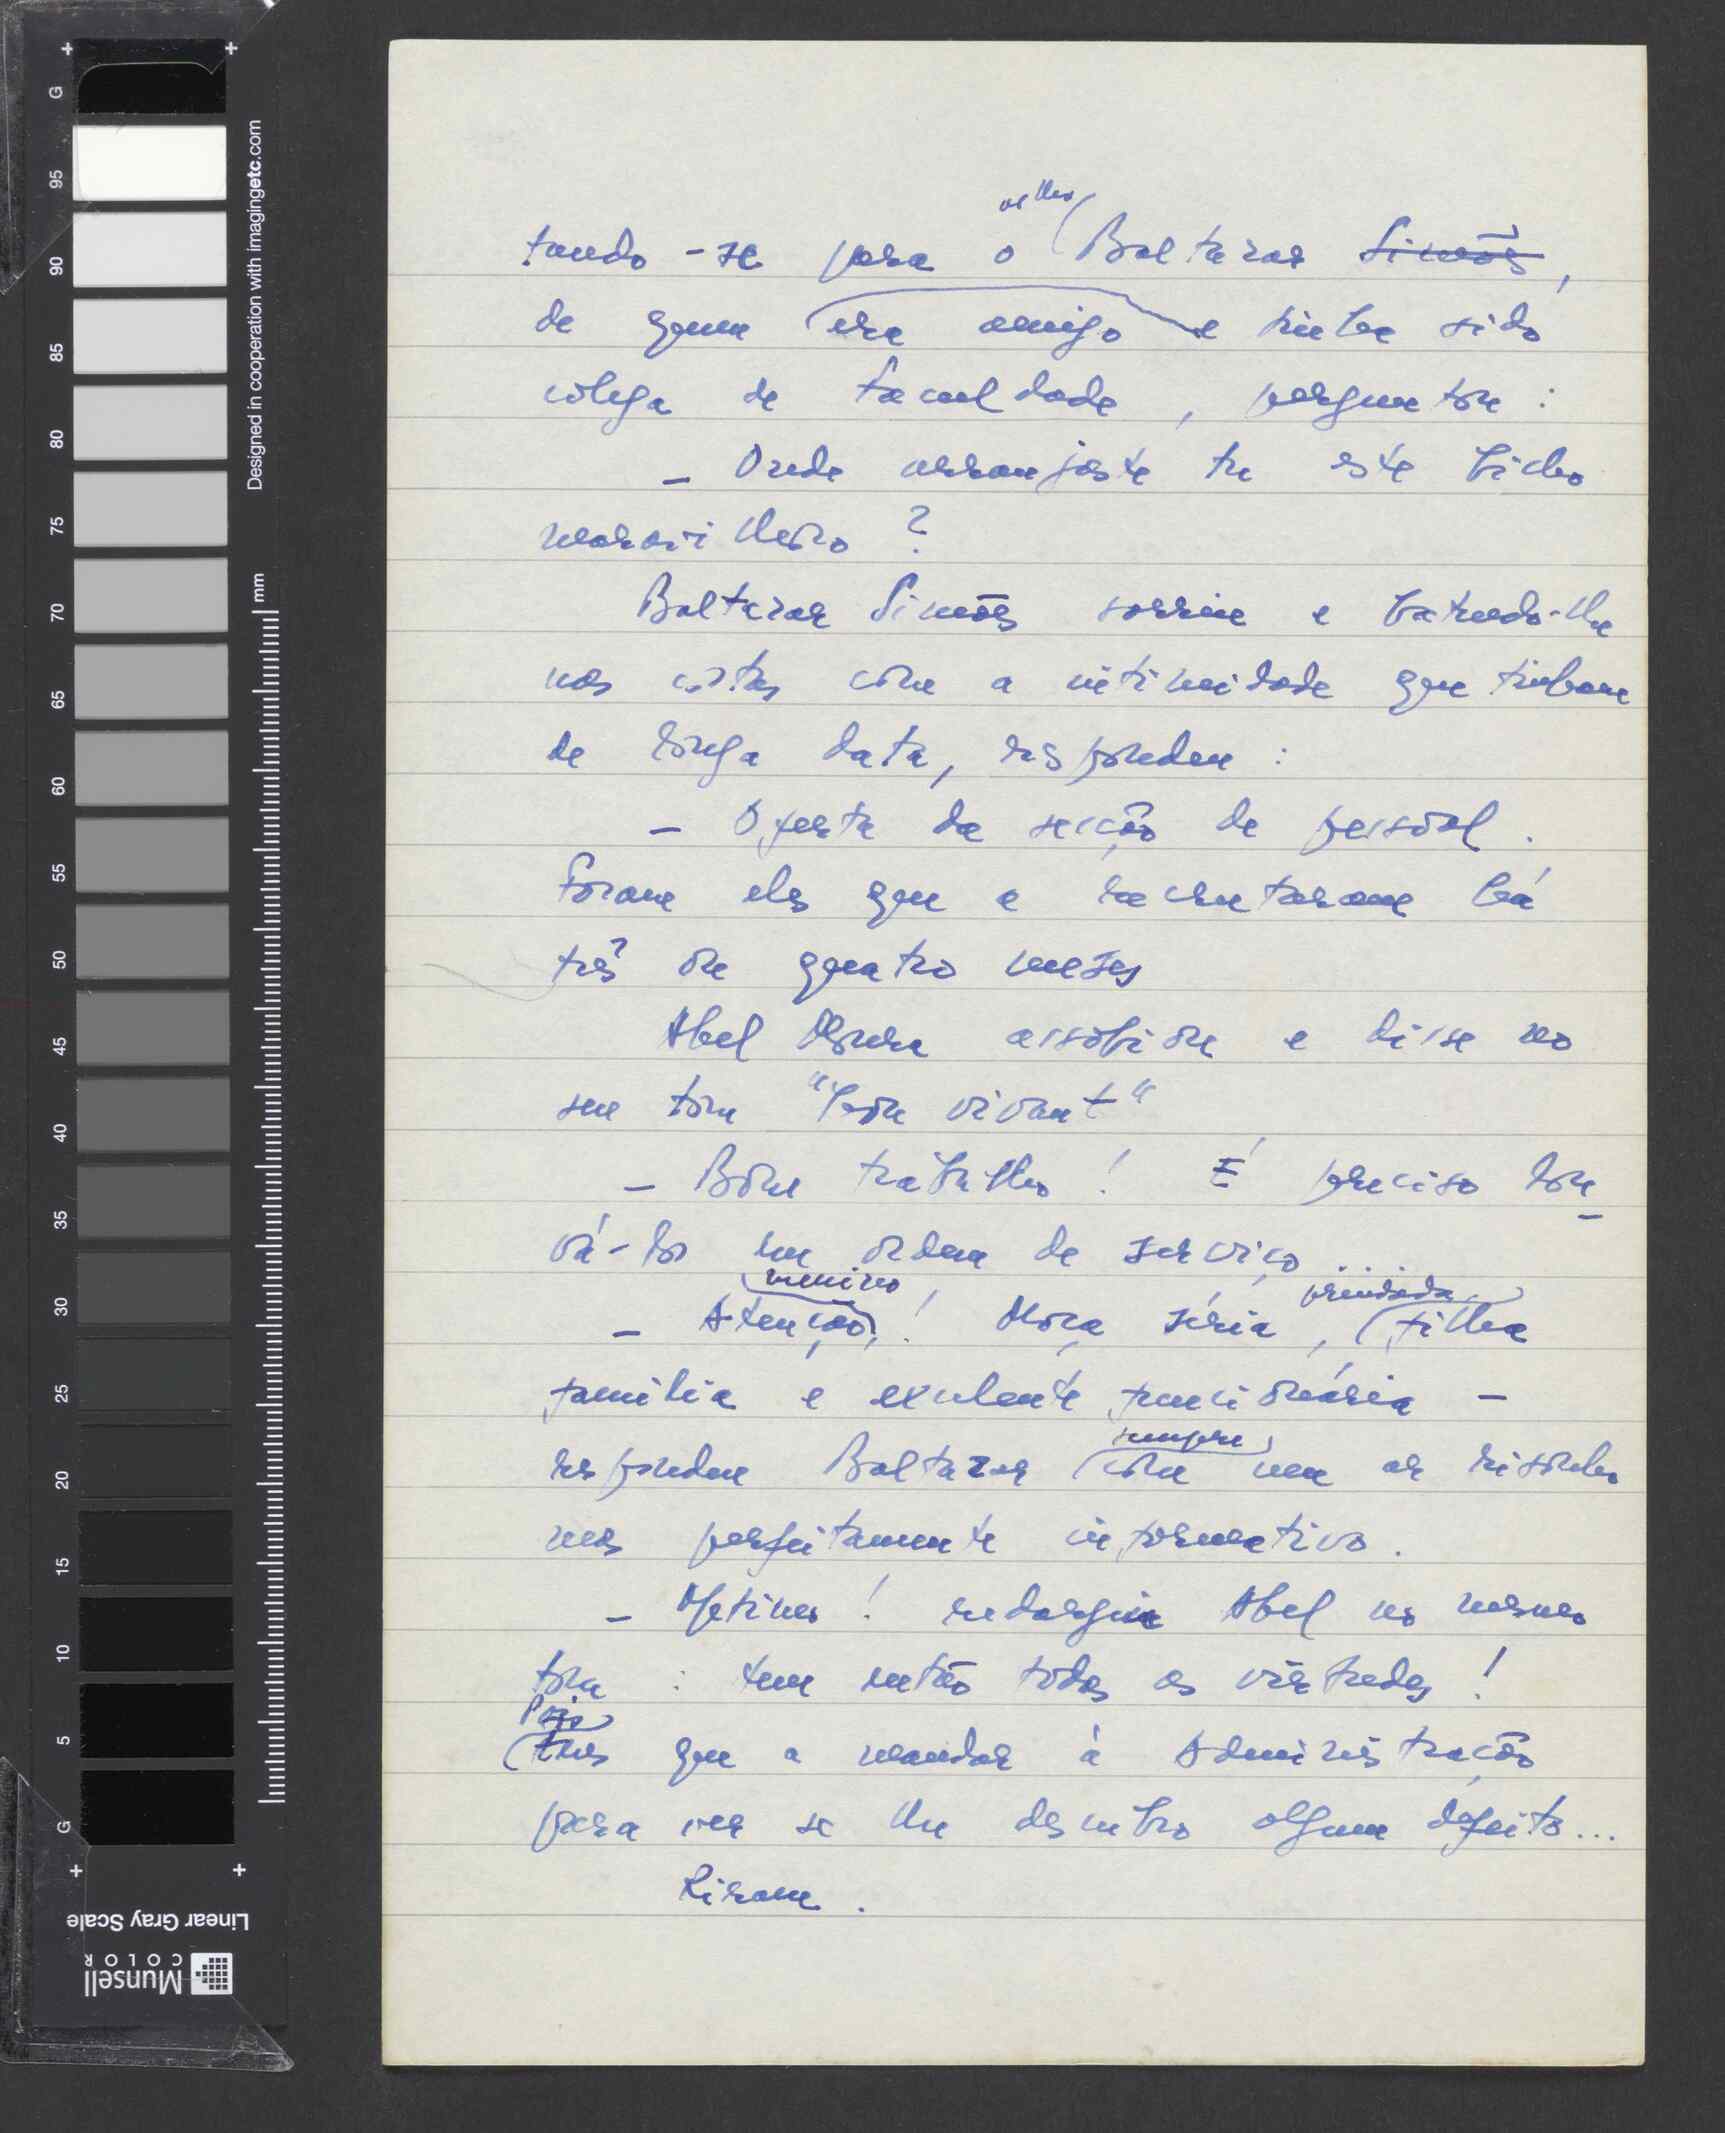 tando-se para o velho Baltazar Simões,
de quem era amigo e tinha sido
colega de faculdade, perguntou:
— Onde arranjaste tu este bicho
maravilhoso?
Baltazar Simões sorriu e batendo-lhe
nas costas com a intimidade que tinham
de longa data, respondeu:
— Oferta da secção de pessoal.
Foram eles que a recrutaram há
três ou quatro meses
Abel Moura assobiou e disse no
seu tom "bon vivant"
— Bom trabalho! É preciso lou-
vá-los em ordem de serviço...
menino prendada
— Atenção,! Moça séria, filha
família e excelente funcionária —
sempre
respondeu Baltazar com um ar risonho
mas perfeitamente informativo.
— Óptimo! redarguiu Abel no mesmo
tom: tem então todas as virtudes!
Pois
tens que a mandar à Administração
para ver se lhe descubro algum defeito...
Riram.
G 95 90 85 80 75 70 65 60 55 50 45 40 35 30 25 20 15 10 5 G
Designed in cooperation with imagingetc.com
mm
Linear Gray Scale
Munsell
COLOR